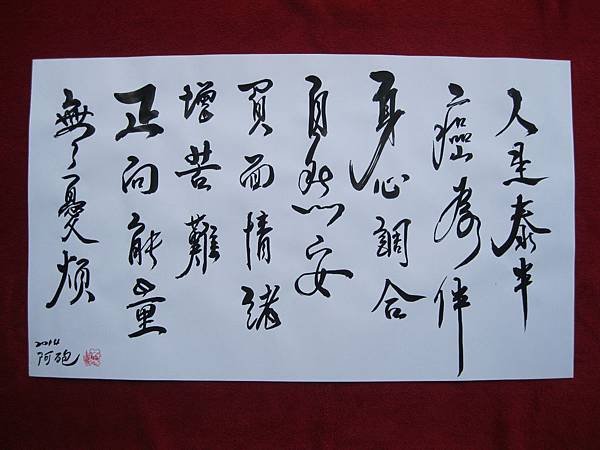 人是泰半
癌為伴
身心調合
自然安
負面情緒
增苦難
正向能量
無憂煩
2014
阿砲